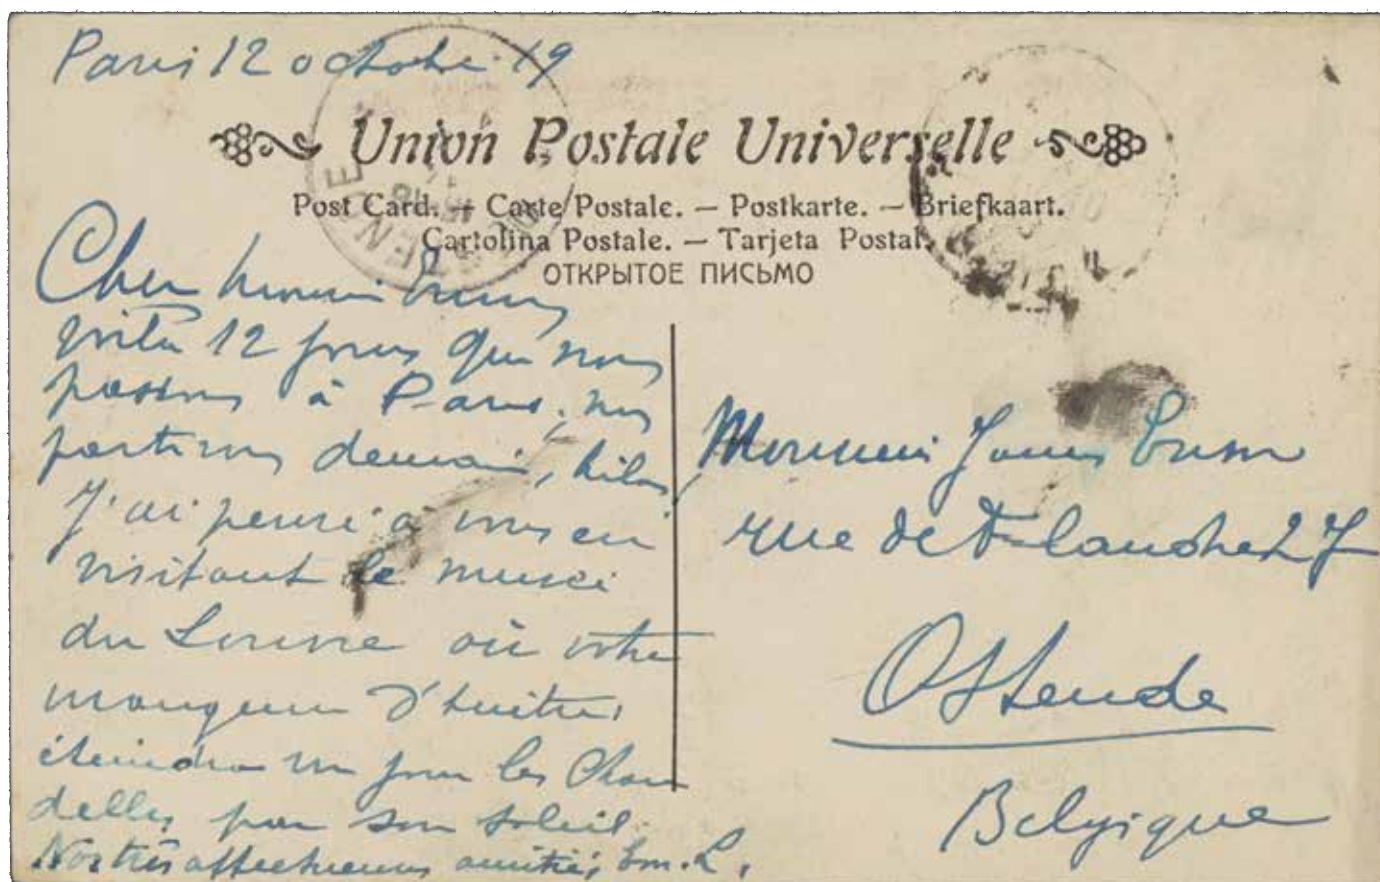 Paris 12 octobre 19
Union Postale Universelle
Post Card. — Carte Postale. — Postkarte. — Briefkaart.
Cartolina Postale. — Tarjeta Postal.
ОТКРЫТОЕ ПИСЬМО
Cher monsieur Ensor
voilà 12 jours que nous
passons à Paris, nous
partirons demain, hélas
J'ai pensé à vous en
visitant le musée
du Louvre où votre
mangeuse d'huitres
éteindra un jour les Chan
delles par son soleil.
Nos très affectueuses amitiés, Em. L.
Monsieur James Ensor
rue de Flandre 27
Ostende
Belgique